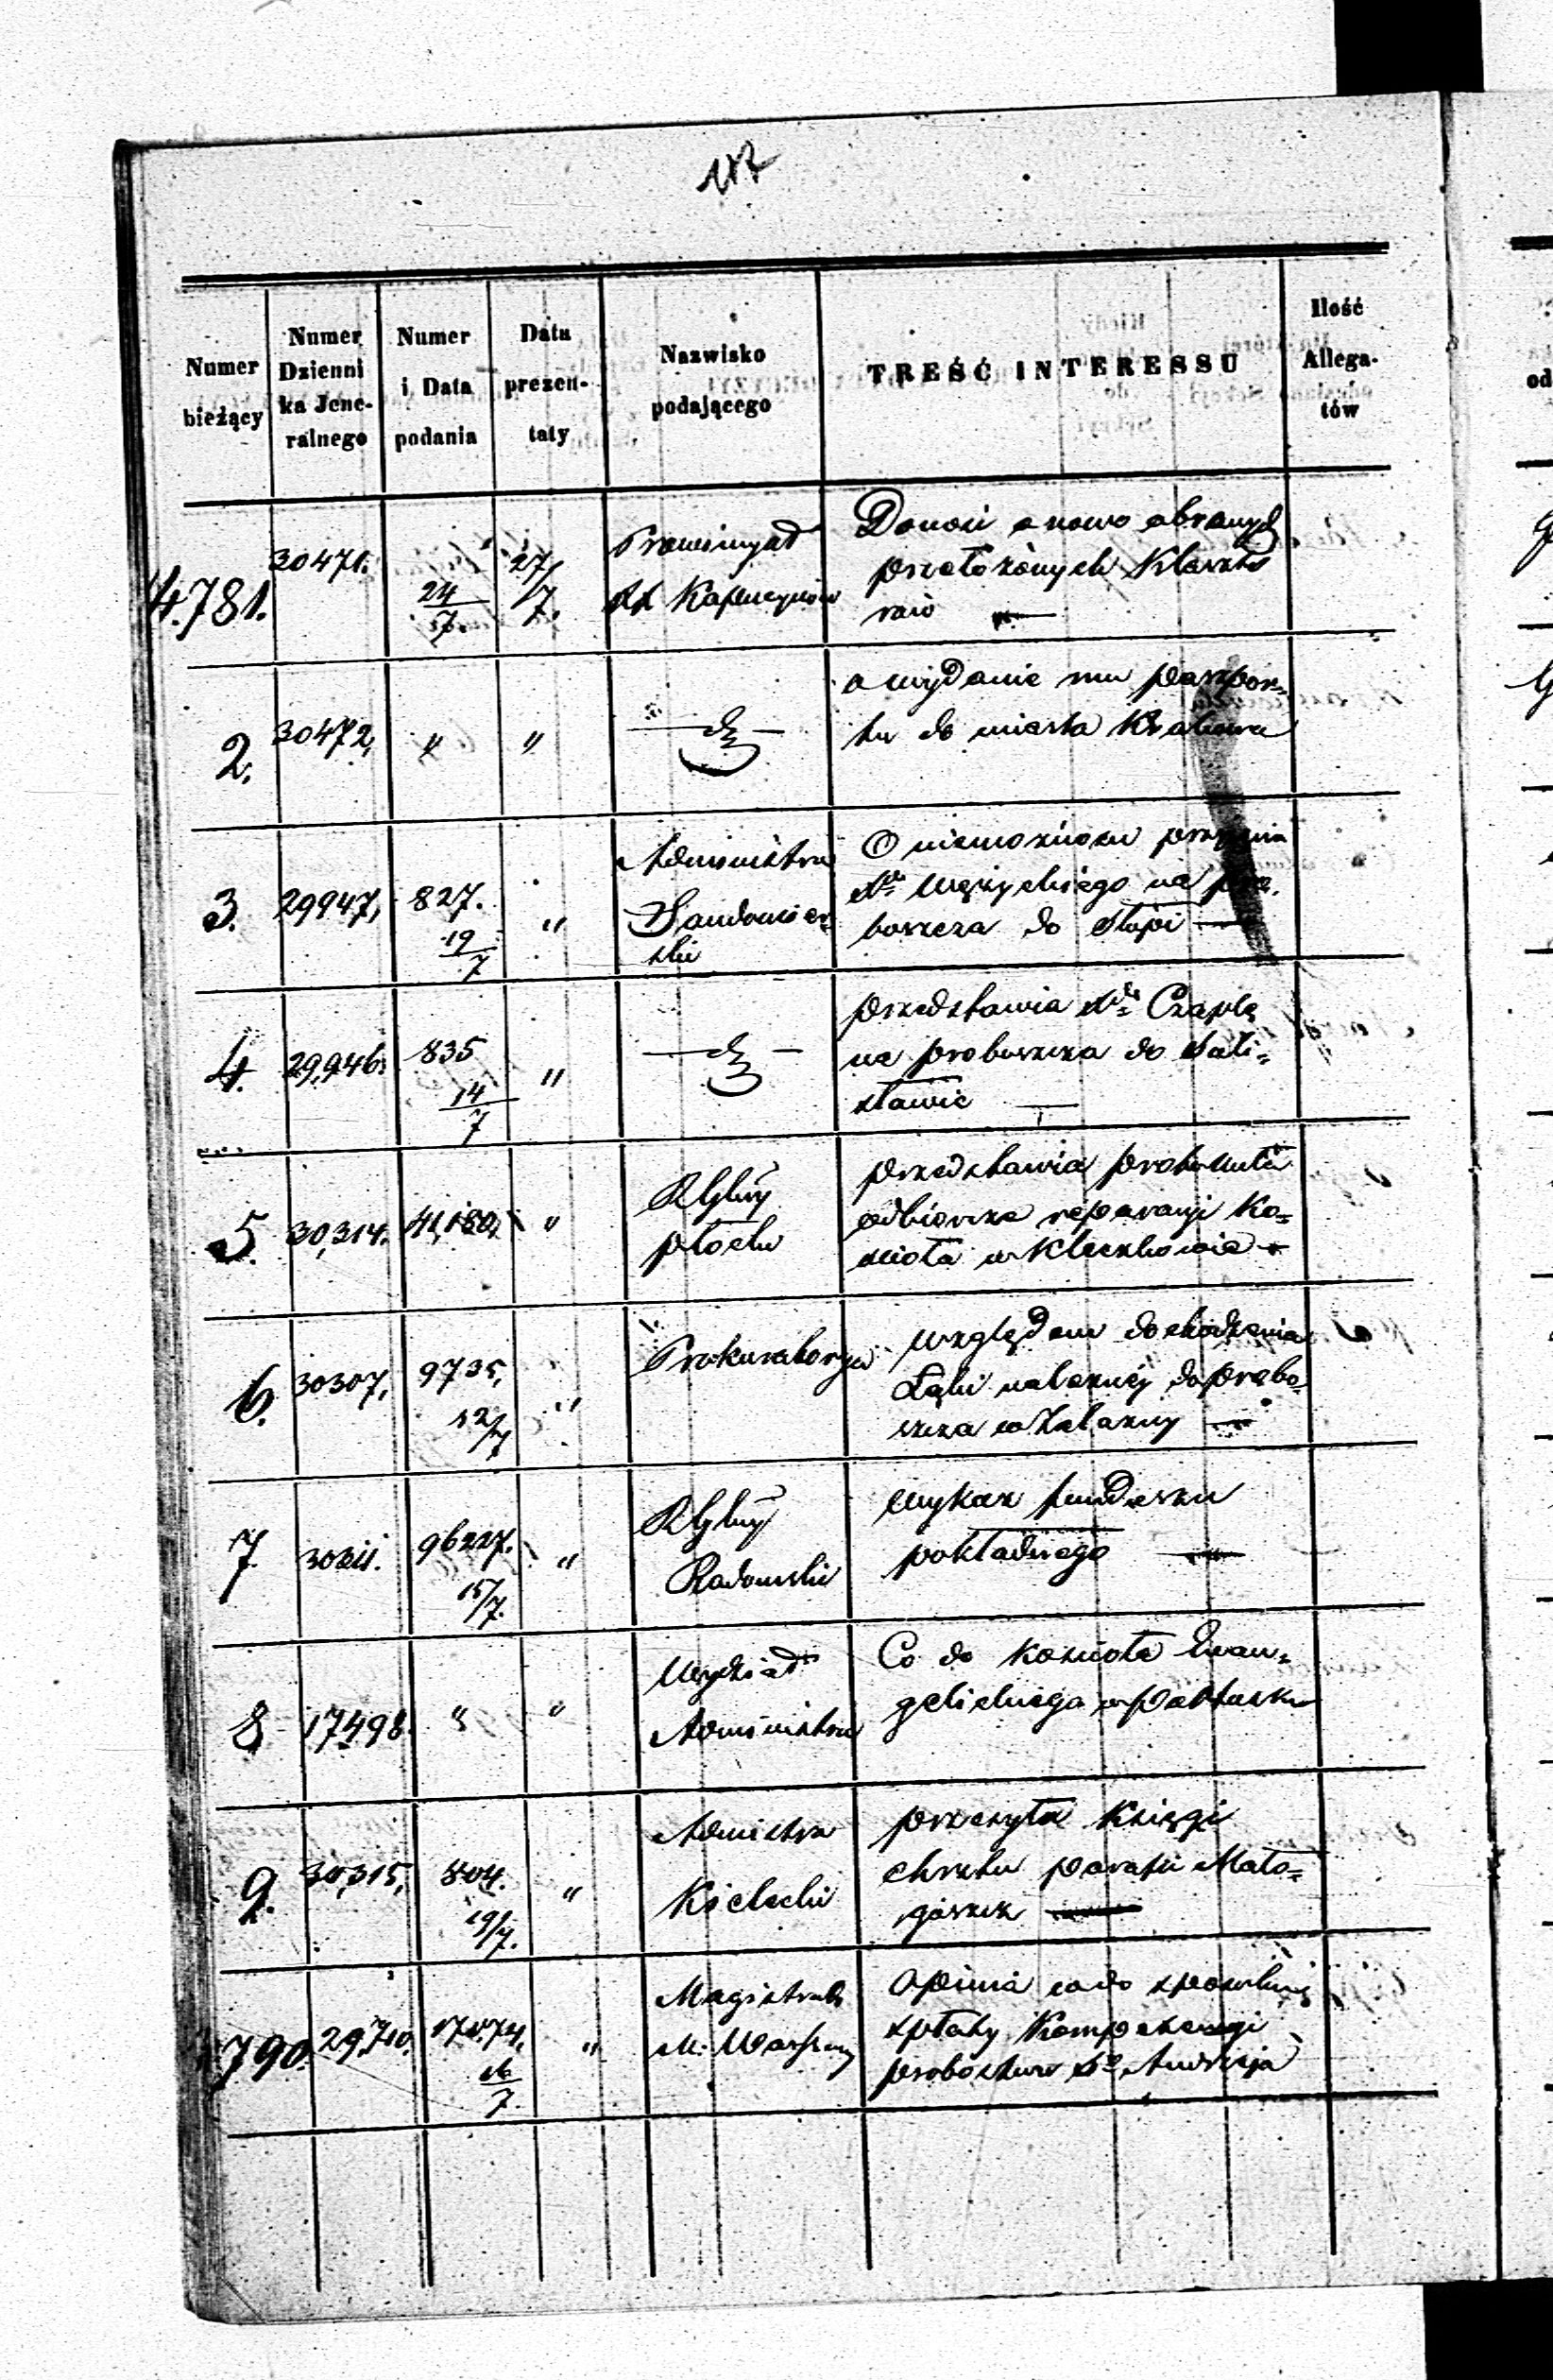 187
Numer bieżący
Numer Dzienni ka Jene- ralnego
Numer i Data podania
Data prezen- taty
Nazwisko podającego
TREŚĆ INTERESSU
Ilość Allega- tów
4.781. 30471. 24/7. 27/7. Prowincyał
XX Kapucynów
Donosi o nowo obranych
przełożonych Klaszto
rów —
2. 30472, " " — dto —
o wydanie mu paszpor-
tu do miasta Krakowa
3. 29947, 827. 19/7 " Administra
Sandomier-
ski
O niemożności przyjęcia
Xdza na pro-
boszcza do Słupi —
4. 29,946. 835 14/7 " — dto —
przedstawia Xdza Czaplę
na proboszcza do Sali-
sławic —
5. 30,314. 41,180, " RGlny
płocki
przedstawia protokuła
odbiorcze reparacyi Ko-
ścioła w Kleczkowie —
6. 30307, 9735, 12/7 " Prokuratorya
względem dochodzenia
Łąki należnej do probo-
szcza w Żelazny —
7. 96227. 15/7. " RGlny
Radomski
wykaz funduszu
pokładnego —
8 17498. " " Wydział
Administra
Co do Kościoła Ewan-
gelickiego w Pułtusku
9. 30,315, 804. 19/7. " Admistra
Kielecki
przesyła Księgi
chrztu parafii Mało-
goszcz —
790. 29,710. 17474, 16/7. " Magistrat
M. Warszawy
Opinia co do
spłaty Kompetencyi
probostwa Sgo Andrzeja